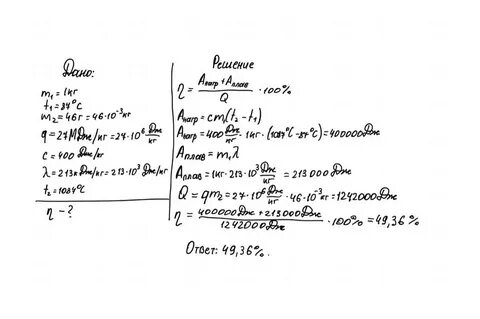 Дано:
m₁ = 1кг
t₁ = 84°C
m₂ = 46г = 46·10⁻³кг
q = 27МДж/кг = 27·10⁶ Дж/кг
c = 400 Дж/кг
λ = 213кДж/кг = 213·10³ Дж/кг
t₂ = 1084°C
η - ?
Решение
η = (Aнагр + Aплав)/Q · 100%
Aнагр = cm₁(t₂ - t₁)
Aнагр = 400 Дж/кг · 1кг · (1084°C - 84°C) = 400000Дж
Aплав = m₁λ
Aплав = 1кг · 213·10³ Дж/кг = 213 000Дж
Q = qm₂ = 27·10⁶ Дж/кг · 46·10⁻³кг = 1242000Дж
η = (400000Дж + 213000Дж)/1242000Дж · 100% = 49,36%
Ответ: 49,36%.